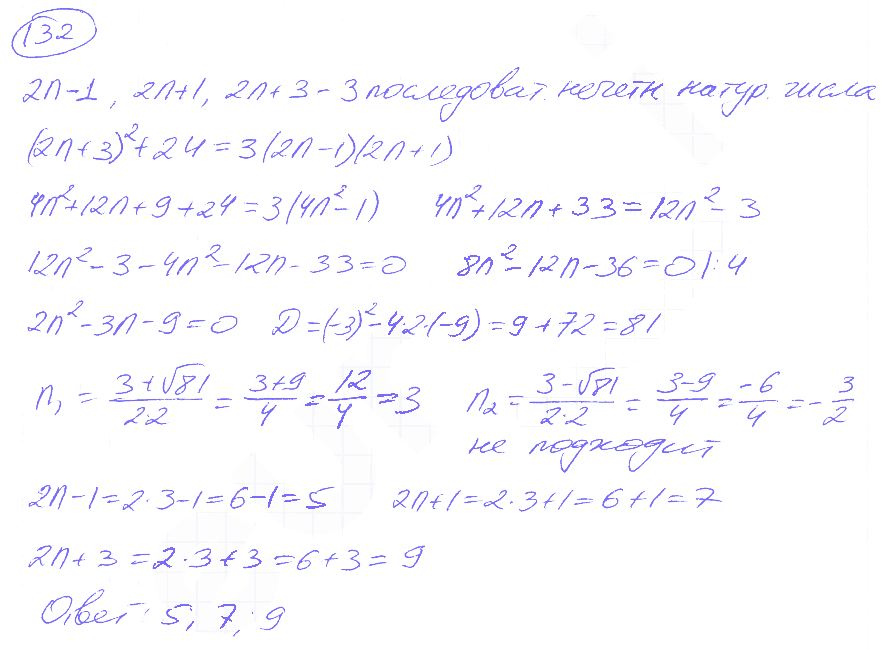 132
2n-1, 2n+1, 2n+3 - 3 последоват. нечетн натур. числа
(2n+3)²+24=3(2n-1)(2n+1)
4n²+12n+9+24=3(4n²-1) 4n²+12n+33=12n²-3
12n²-3-4n²-12n-33=0 8n²-12n-36=0 |:4
2n²-3n-9=0 D=(-3)²-4·2·(-9)=9+72=81
n₁ = (3+√81)/(2·2) = (3+9)/4 = 12/4 = 3 n₂ = (3-√81)/(2·2) = (3-9)/4 = -6/4 = -3/2
не подходит
2n-1=2·3-1=6-1=5 2n+1=2·3+1=6+1=7
2n+3=2·3+3=6+3=9
Ответ: 5; 7; 9